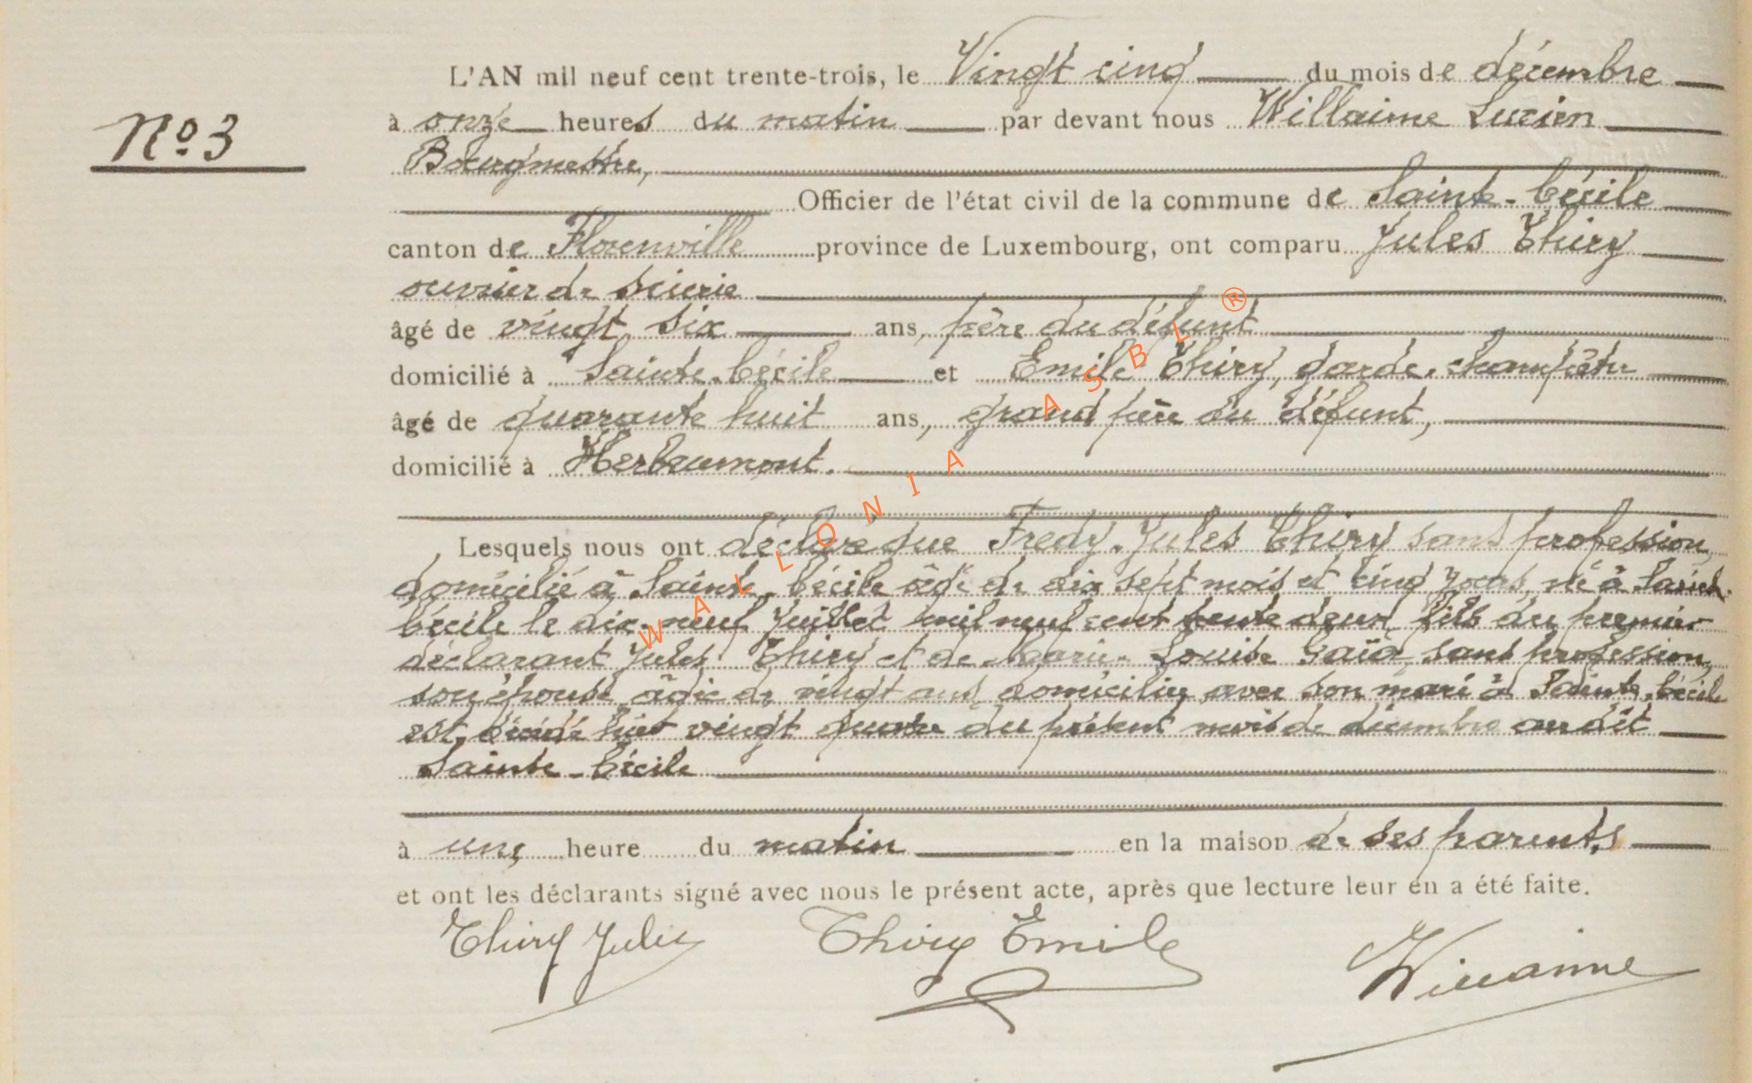 L'AN mil neuf cent trente-trois, le Vingt cinq du mois de décembre
N° 3
à onze heures du matin par devant nous Willaime Lucien
Bourgmestre,
Officier de l'état civil de la commune de Sainte-Cécile
canton de Florenville province de Luxembourg, ont comparu Jules Thiry
ouvrier de scierie
âgé de vingt six ans, père du défunt
domicilié à Sainte-Cécile et Emile Thiry, garde-champêtre
âgé de quarante huit ans, grand père du défunt,
domicilié à Herbeumont.
Lesquels nous ont déclaré que Fredy Jules Thiry sans profession,
domicilié à Sainte-Cécile âgé de dix sept mois et cinq jours, né à Sainte-
Cécile le dix-neuf juillet mil neuf cent trente deux fils du premier
déclarant Jules Thiry et de Marie-Louise sans profession,
son épouse âgée de vingt ans domiciliée avec son mari à Sainte-Cécile
est décédé hier vingt quatre du présent mois de décembre au dit
Sainte-Cécile
à une heure du matin en la maison de ses parents
et ont les déclarants signé avec nous le présent acte, après que lecture leur en a été faite.
Thiry Jules Thiry Emile Willaime
WALLONIA ASBL ®